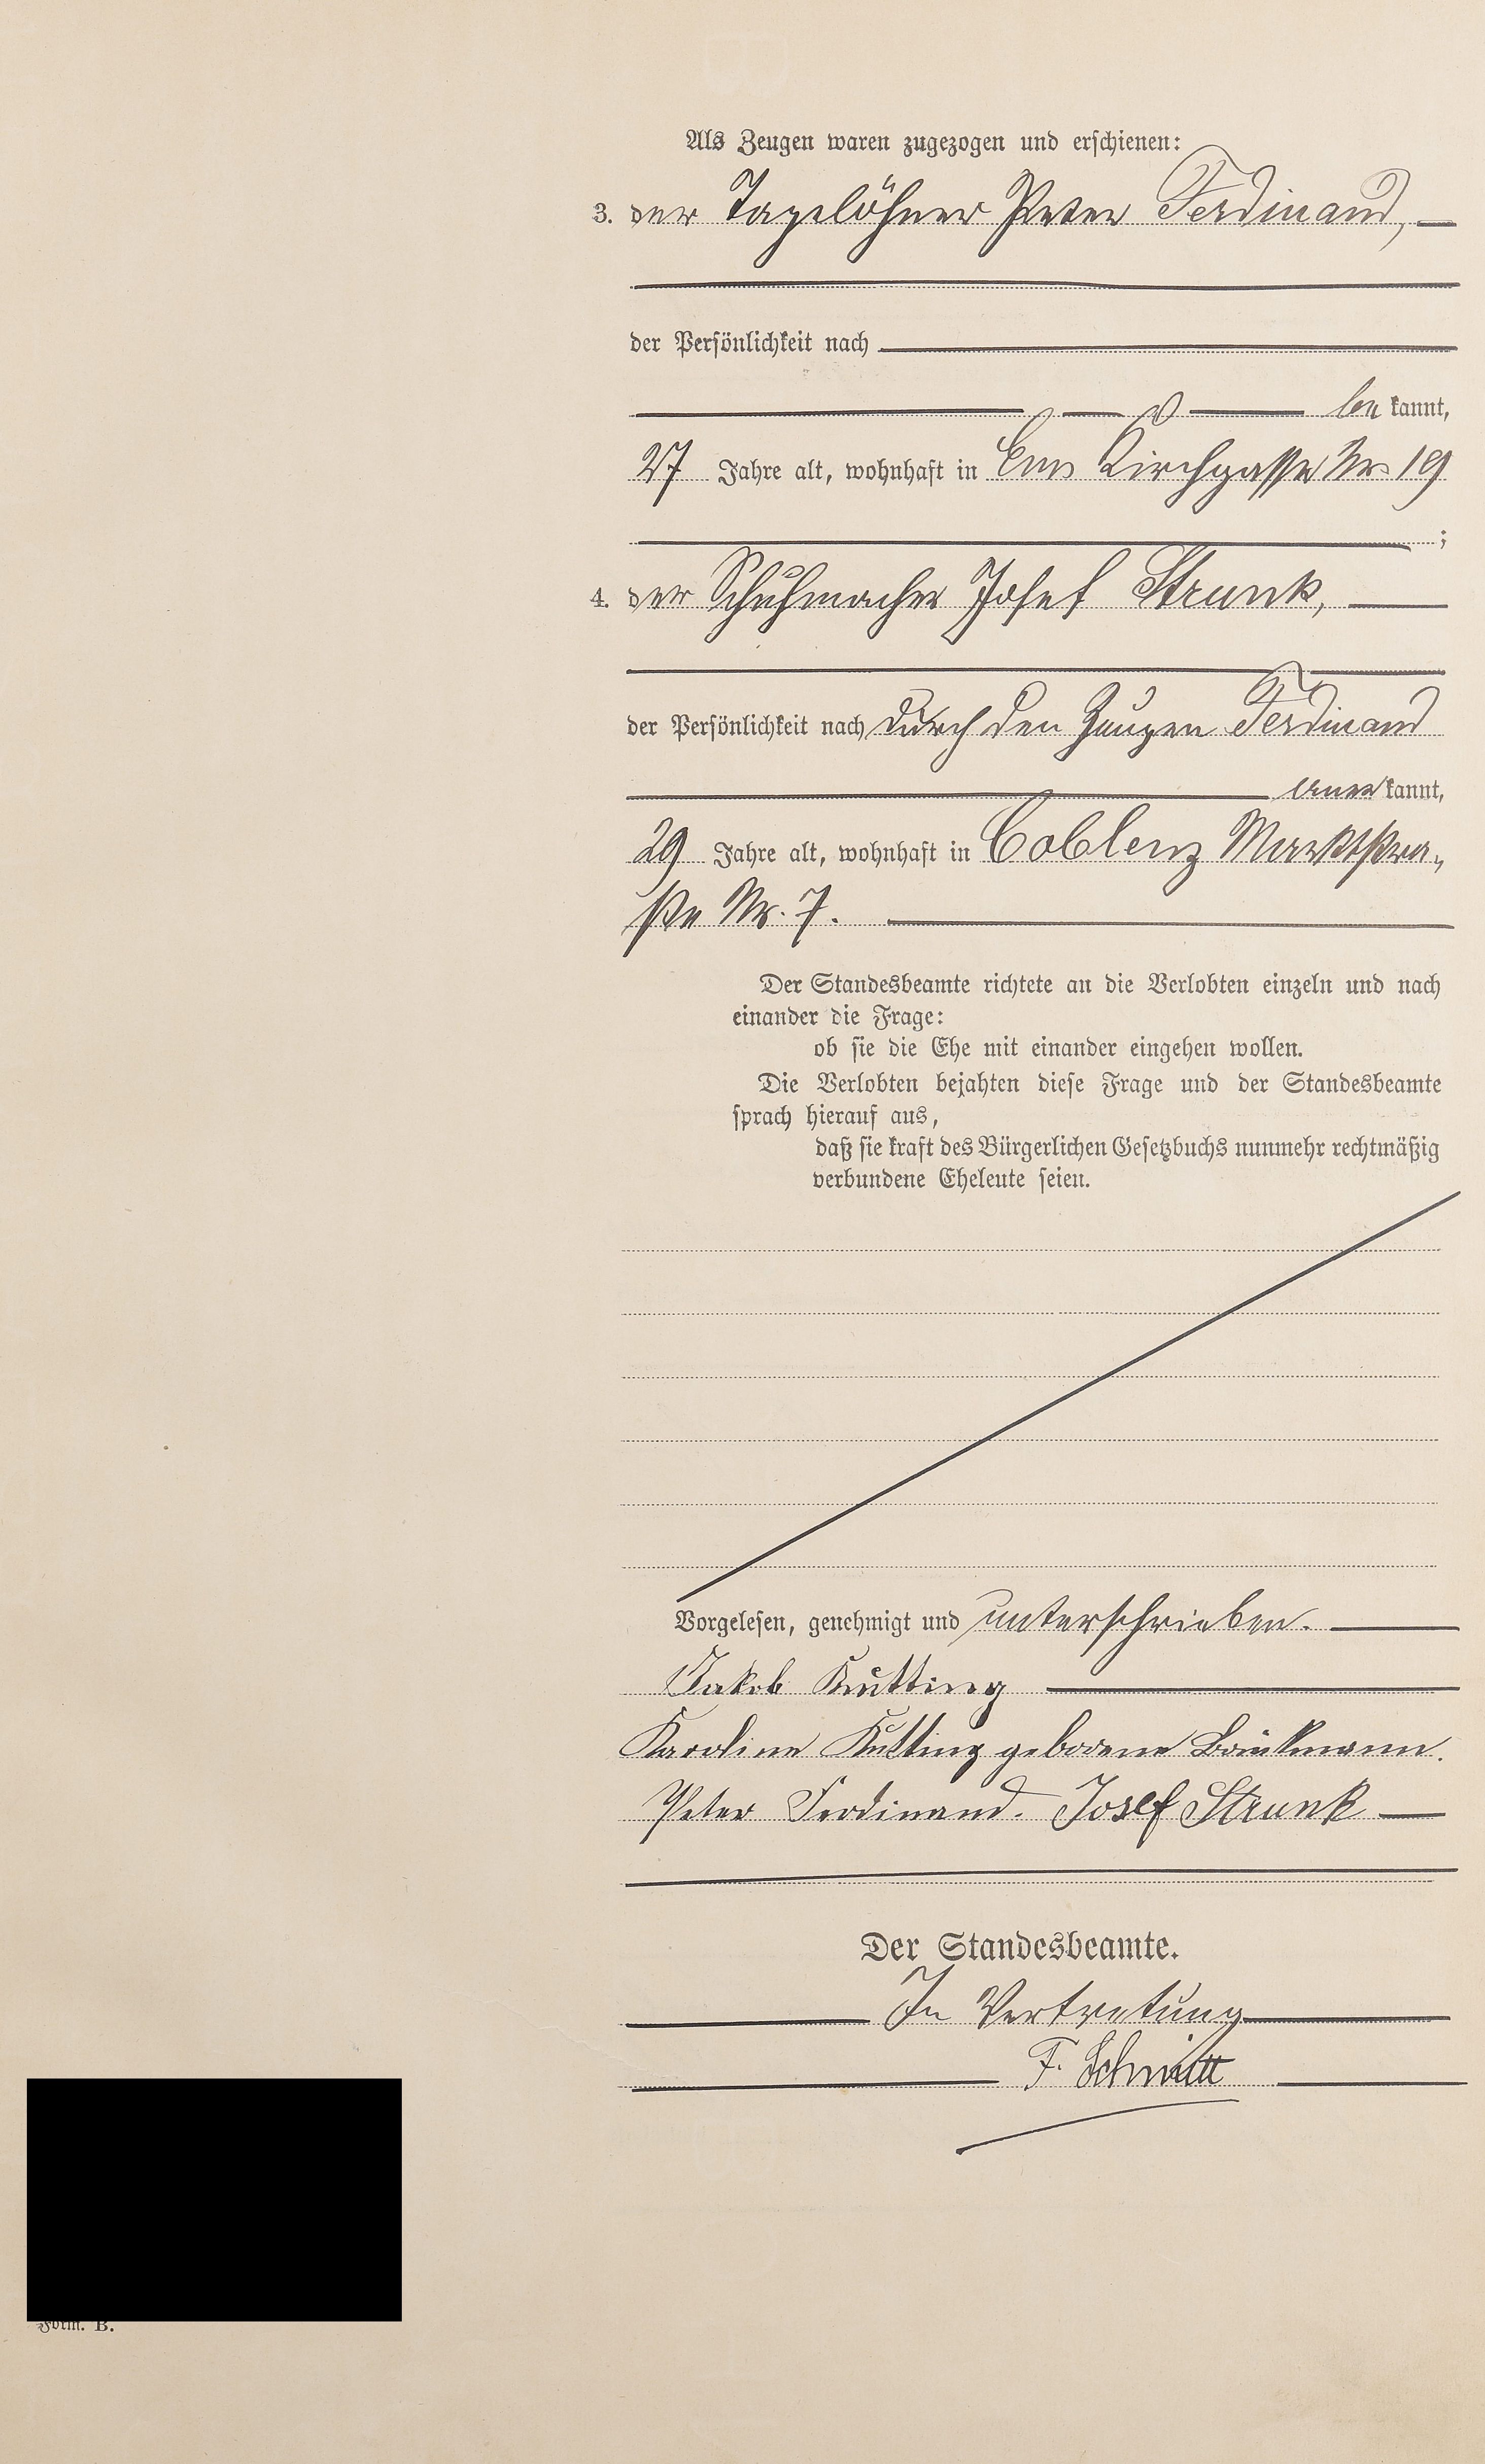 Als Zeugen waren zugezogen und erschienen:
3. der Tagelöhner Peter Ferdinand,
der Persönlichkeit nach
be kannt,
27 Jahre alt, wohnhaft in Ems Kirchgasse Nr 19
;
4. der Schuhmacher Josef Strunk,
der Persönlichkeit nach durch den Zeugen Ferdinand
aner kannt,
29 Jahre alt, wohnhaft in Coblenz Marktstra-
ße Nr. 7.
Der Standesbeamte richtete an die Verlobten einzeln und nach
einander die Frage:
ob sie die Ehe mit einander eingehen wollen.
Die Verlobten bejahten diese Frage und der Standesbeamte
sprach hierauf aus,
daß sie kraft des Bürgerlichen Gesetzbuchs nunmehr rechtmäßig
verbundene Eheleute seien.
Vorgelesen, genehmigt und unterschrieben.
Jakob Kutting
Karoline Kutting geborene Brinkmann.
Peter Ferdinand. Josef Strunk
Der Standesbeamte.
In Vertretung
F. Schmitt
Form. B.